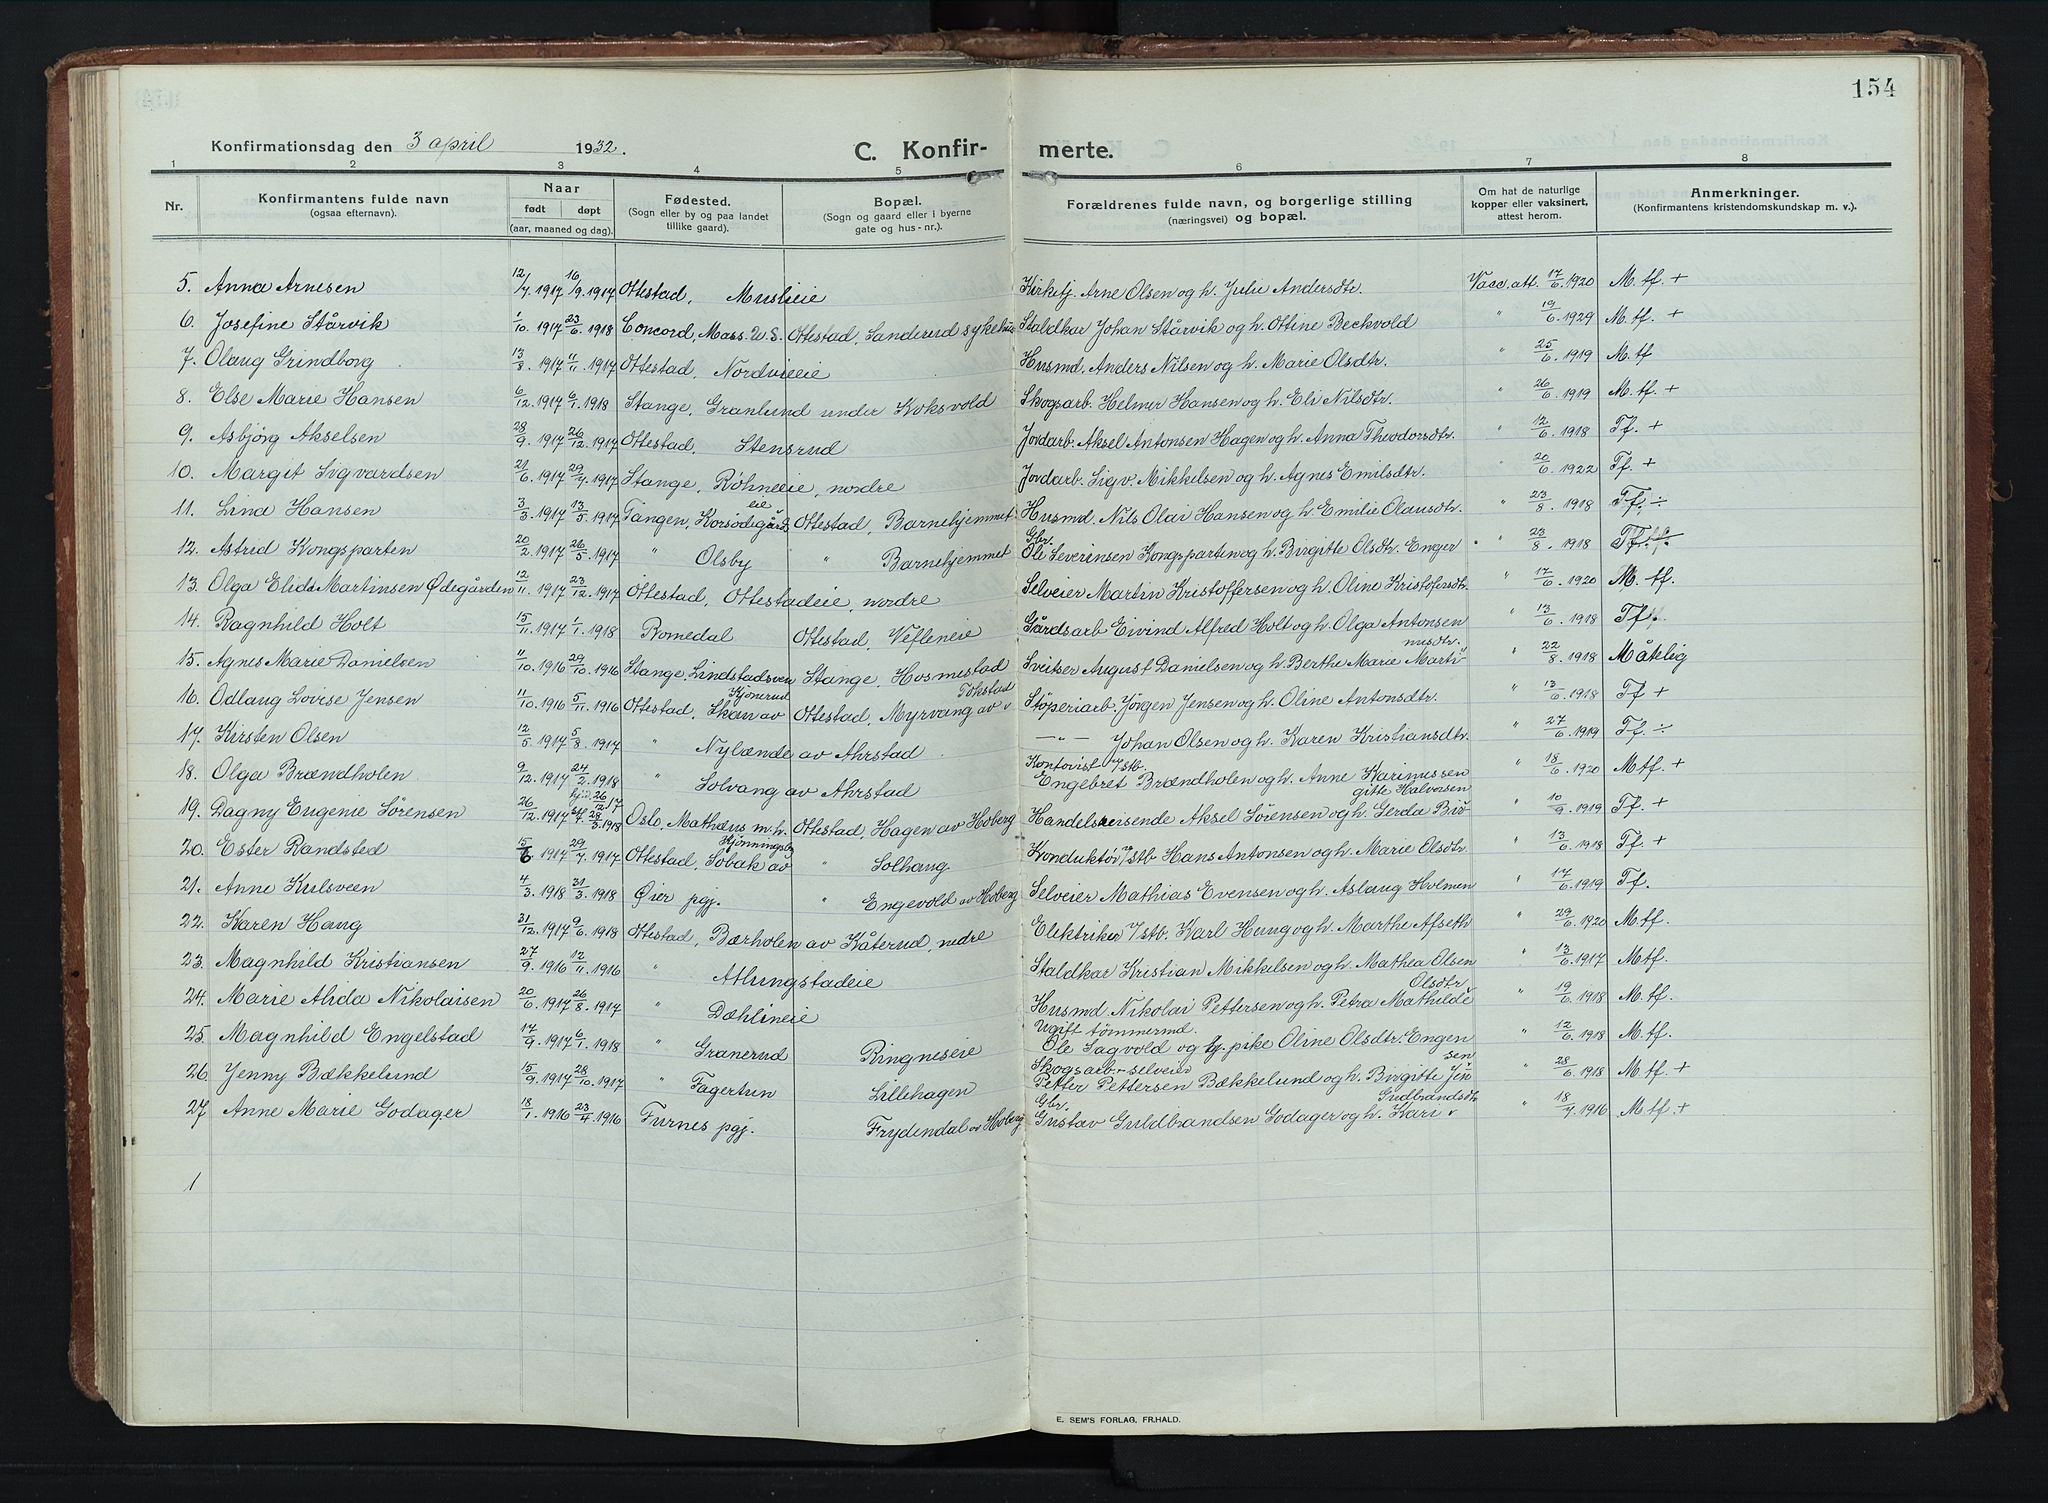 154
Konfirmationsdag den 3 april 1932.
C. Konfir- merte.
1 2 3 4 5 6 7 8
Nr. Konfirmantens fulde navn (ogsaa efternavn). Naar født døpt (aar, maaned og dag). Fødested. (Sogn eller by og paa landet tillike gaard). Bopæl. (Sogn og gaard eller i byerne gate og hus-nr.). Forældrenes fulde navn, og borgerlige stilling (næringsvei) og bopæl. Om hat de naturlige kopper eller vaksinert, attest herom. Anmerkninger. (Konfirmantens kristendomskundskap m. v.).
5. Anna Arnesen 12/7. 1917 16/9. 1917 Ottestad, Muslieie Kirketj. Arne Olsen og h. Julie Andersdtr. Vacc. att. 17/6. 1920 M. tf. +
6. Josefine Stårvik 1/10. 1917 23/6. 1918 Concord, Mass. U. S. Ottestad, Sanderud sykehus Staldkar Johan Stårvik og h. Ottine Beckvold " 19/6. 1929 M. tf. +
7. Olaug Grindborg 13/8. 1917 11/11. 1917 Ottestad, Nordvieie Husmd. Anders Nilsen og h. Marie Olsdtr. " 25/6. 1919 M. tf
8. Else Marie Hansen 6/12. 1917 6/1. 1918 Stange, Granlund under Koksvold Skogsarb. Helmer Hansen og h. Eli Nilsdtr. " 26/6. 1919 M. tf. +
9. Asbjörg Akselsen 28/9. 1917 26/12. 1917 Ottestad, Stensrud Jordarb. Aksel Antonsen Hagen og h. Anna Theodorsdtr. " 12/6. 1918 Tf. +
10. Margit Sigvardsen 21/6. 1917 29/7. 1917 Stange, Röhneeie, nordre Jordarb. Sigv. Mikkelsen og h. Agnes Emilsdtr. " 20/6. 1922 Tf. +
11. Lina Hansen 3/3. 1917 13/5. 1917 Tangen, Korsödegårdseie Ottestad, Barnehjemmet Husmd. Nils Olai Hansen og h. Emilie Olausdtr. " 23/8. 1918 Tf. ÷
12. Astrid Kongsparten 20/2. 1917 26/5. 1917 " Olsby " Barnehjemmet Gbr. Ole Severinsen Kongsparten og h. Birgitte Olsdtr. Enger " 23/8. 1918 Tf.
13. Olga Elida Martinsen Ødegården 12/11. 1917 23/12. 1917 Ottestad, Ottestadeie, nordre Selveier Martin Kristoffersen og h. Oline Kristofersdtr. " 17/6. 1920 M. tf.
14. Ragnhild Holt 15/11. 1917 1/1. 1918 Romedal Ottestad, Vefleneie Gårdsarb Eivind Alfred Holt og h. Olga Antonsen " 13/6. 1918 Tf.
15. Agnes Marie Danielsen 11/10. 1916 29/10. 1916 Stange, Lindstadsven Stange, Hosmestad Sveitser August Danielsen og h. Berthe Marie Martinusdtr. " 22/8. 1918 Måtelig
16. Odlaug Lovise Jensen 11/10. 1916 5/11. 1916 Ottestad, Skan av Kjönerud Ottestad, Myrvang av Tokstad Støperiarb. Jörgen Jensen og h. Oline Antonsdtr. " 13/6. 1918 Tf +
17. Kirsten Olsen 12/5. 1917 5/8. 1917 " Nylænde av Ahrstad —"— Johan Olsen og h. Karen Kristiansdtr. " 27/6. 1919 Tf. ÷
18. Olga Brændholen 9/12. 1917 24/2. 1918 " Solvang av Ahrstad Kontorist v/stb. Engebret Brændholen og h. Anne Karimussen " 18/6. 1920 Mtf. +
19. Dagny Eugenie Sörensen 26/12. 1917 hjd. 26/12 17 st. 28/3. 1918 Oslo, Mathæus m. h. Ottestad, Hagen av Hoberg Handelsreisende Aksel Sörensen og h. Gerda Birgitte Halvorsen " 10/9. 1919 Tf. +
20. Ester Randsted 15/6 1917 29/7. 1917 Ottestad, Sobak av Kjönningsby " Solhaug. Konduktör v/stb Hans Antonsen og h. Marie Olsdtr. " 13/6. 1918 Tf. +
21. Anne Kulsveen 4/3. 1918 31/3. 1918 Øier pgj. " Engevold av Hoberg Selveier Mathias Evensen og h. Aslaug Holmen " 17/6. 1919 Tf.
22. Karen Haug 31/12. 1917 9/6. 1918 Ottestad, Bærholen av Kåterud, nedre Elektriker v/stb. Karl Haug og h. Marthe Afseth " 29/6. 1920 M. tf.
23. Magnhild Kristiansen 27/9. 1916 12/11. 1916 " Atlungstadeie Staldkar Kristian Mikkelsen og h. Mathea Olsen " 13/6. 1917 Mtf.
24. Marie Alida Nikolaisen 20/6. 1917 26/8. 1917 " Dæhlineie Husmd. Nikolai Pettersen og h. Petra Mathilde Olsdtr. " 19/6. 1918 M. tf.
25. Magnhild Engelstad 17/9. 1917 6/1. 1918 " Granerud Ringneseie Ugift tömmermd. Ole Sagvold og pike Oline Olsdtr. Engen " 12/6. 1918 M. tf.
26. Jenny Bækkelund 15/9. 1917 28/10. 1917 " Fagertun Lillehagen Skogsarb - selveier Petter Pettersen Bækkelund og h. Birgitte Jensen " 28/6. 1918 M. tf. +
27. Anne Marie Godager 18/1. 1916 23/4. 1916 Furnes pgj. Frydendal av Hoberg Gbr. Gustav Guldbrandsen Godager og h. Kari Gudbrandsdtr " 18/7. 1916 M tf. +
1
E. SEM'S FORLAG, FR.HALD.